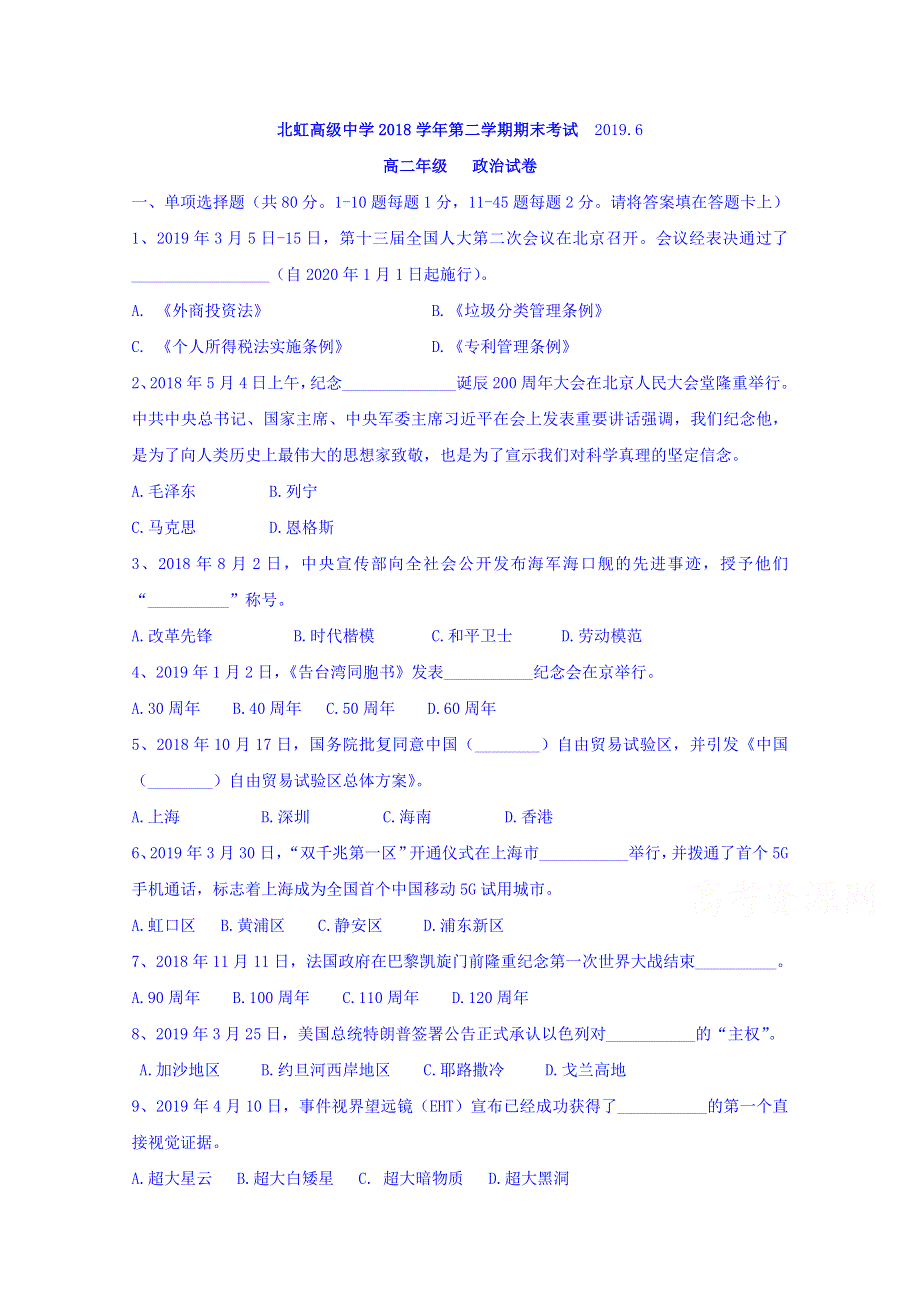 北虹高级中学2018学年第二学期期末考试 2019.6
高二年级 政治试卷
一、单项选择题（共80分。1-10题每题1分，11-45题每题2分。请将答案填在答题卡上）
1、2019年3月5日-15日，第十三届全国人大第二次会议在北京召开。会议经表决通过了
_________________（自2020年1月1日起施行）。
A. 《外商投资法》 B.《垃圾分类管理条例》
C. 《个人所得税法实施条例》 D.《专利管理条例》
2、2018年5月4日上午，纪念______________诞辰200周年大会在北京人民大会堂隆重举行。
中共中央总书记、国家主席、中央军委主席习近平在会上发表重要讲话强调，我们纪念他，
是为了向人类历史上最伟大的思想家致敬，也是为了宣示我们对科学真理的坚定信念。
A.毛泽东 B.列宁
C.马克思 D.恩格斯
3、2018年8月2日，中央宣传部向全社会公开发布海军海口舰的先进事迹，授予他们
“__________”称号。
A.改革先锋 B.时代楷模 C.和平卫士 D.劳动模范
4、2019年1月2日，《告台湾同胞书》发表___________纪念会在京举行。
A.30周年 B.40周年 C.50周年 D.60周年
5、2018年10月17日，国务院批复同意中国（________）自由贸易试验区，并引发《中国
（________）自由贸易试验区总体方案》。
A.上海 B.深圳 C.海南 D.香港
6、2019年3月30日，“双千兆第一区”开通仪式在上海市___________举行，并拨通了首个5G
手机通话，标志着上海成为全国首个中国移动5G试用城市。
A.虹口区 B.黄浦区 C.静安区 D.浦东新区
7、2018年11月11日，法国政府在巴黎凯旋门前隆重纪念第一次世界大战结束__________。
A.90周年 B.100周年 C.110周年 D.120周年
8、2019年3月25日，美国总统特朗普签署公告正式承认以色列对___________的“主权”。
A.加沙地区 B.约旦河西岸地区 C.耶路撒冷 D.戈兰高地
9、2019年4月10日，事件视界望远镜（EHT）宣布已经成功获得了___________的第一个直
接视觉证据。
A.超大星云 B.超大白矮星 C. 超大暗物质 D.超大黑洞
高考资源网